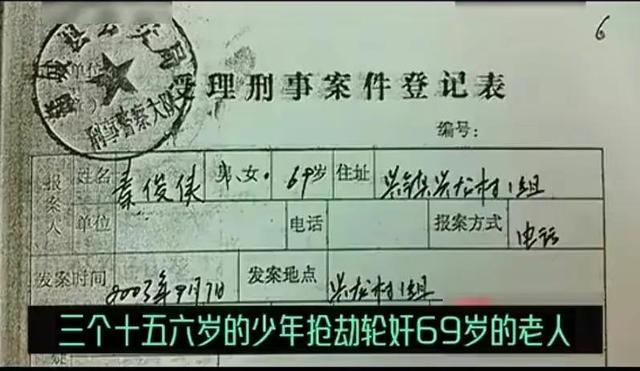 6
公安局
刑事警察大队
受理刑事案件登记表
编号:
报案人 姓名 秦俊侠 男、女 69岁 住址 兴龙村1组
单位 电话 报案方式 电话
发案时间 2003年9月7日 发案地点 兴龙村1组
三个十五六岁的少年抢劫轮奸69岁的老人